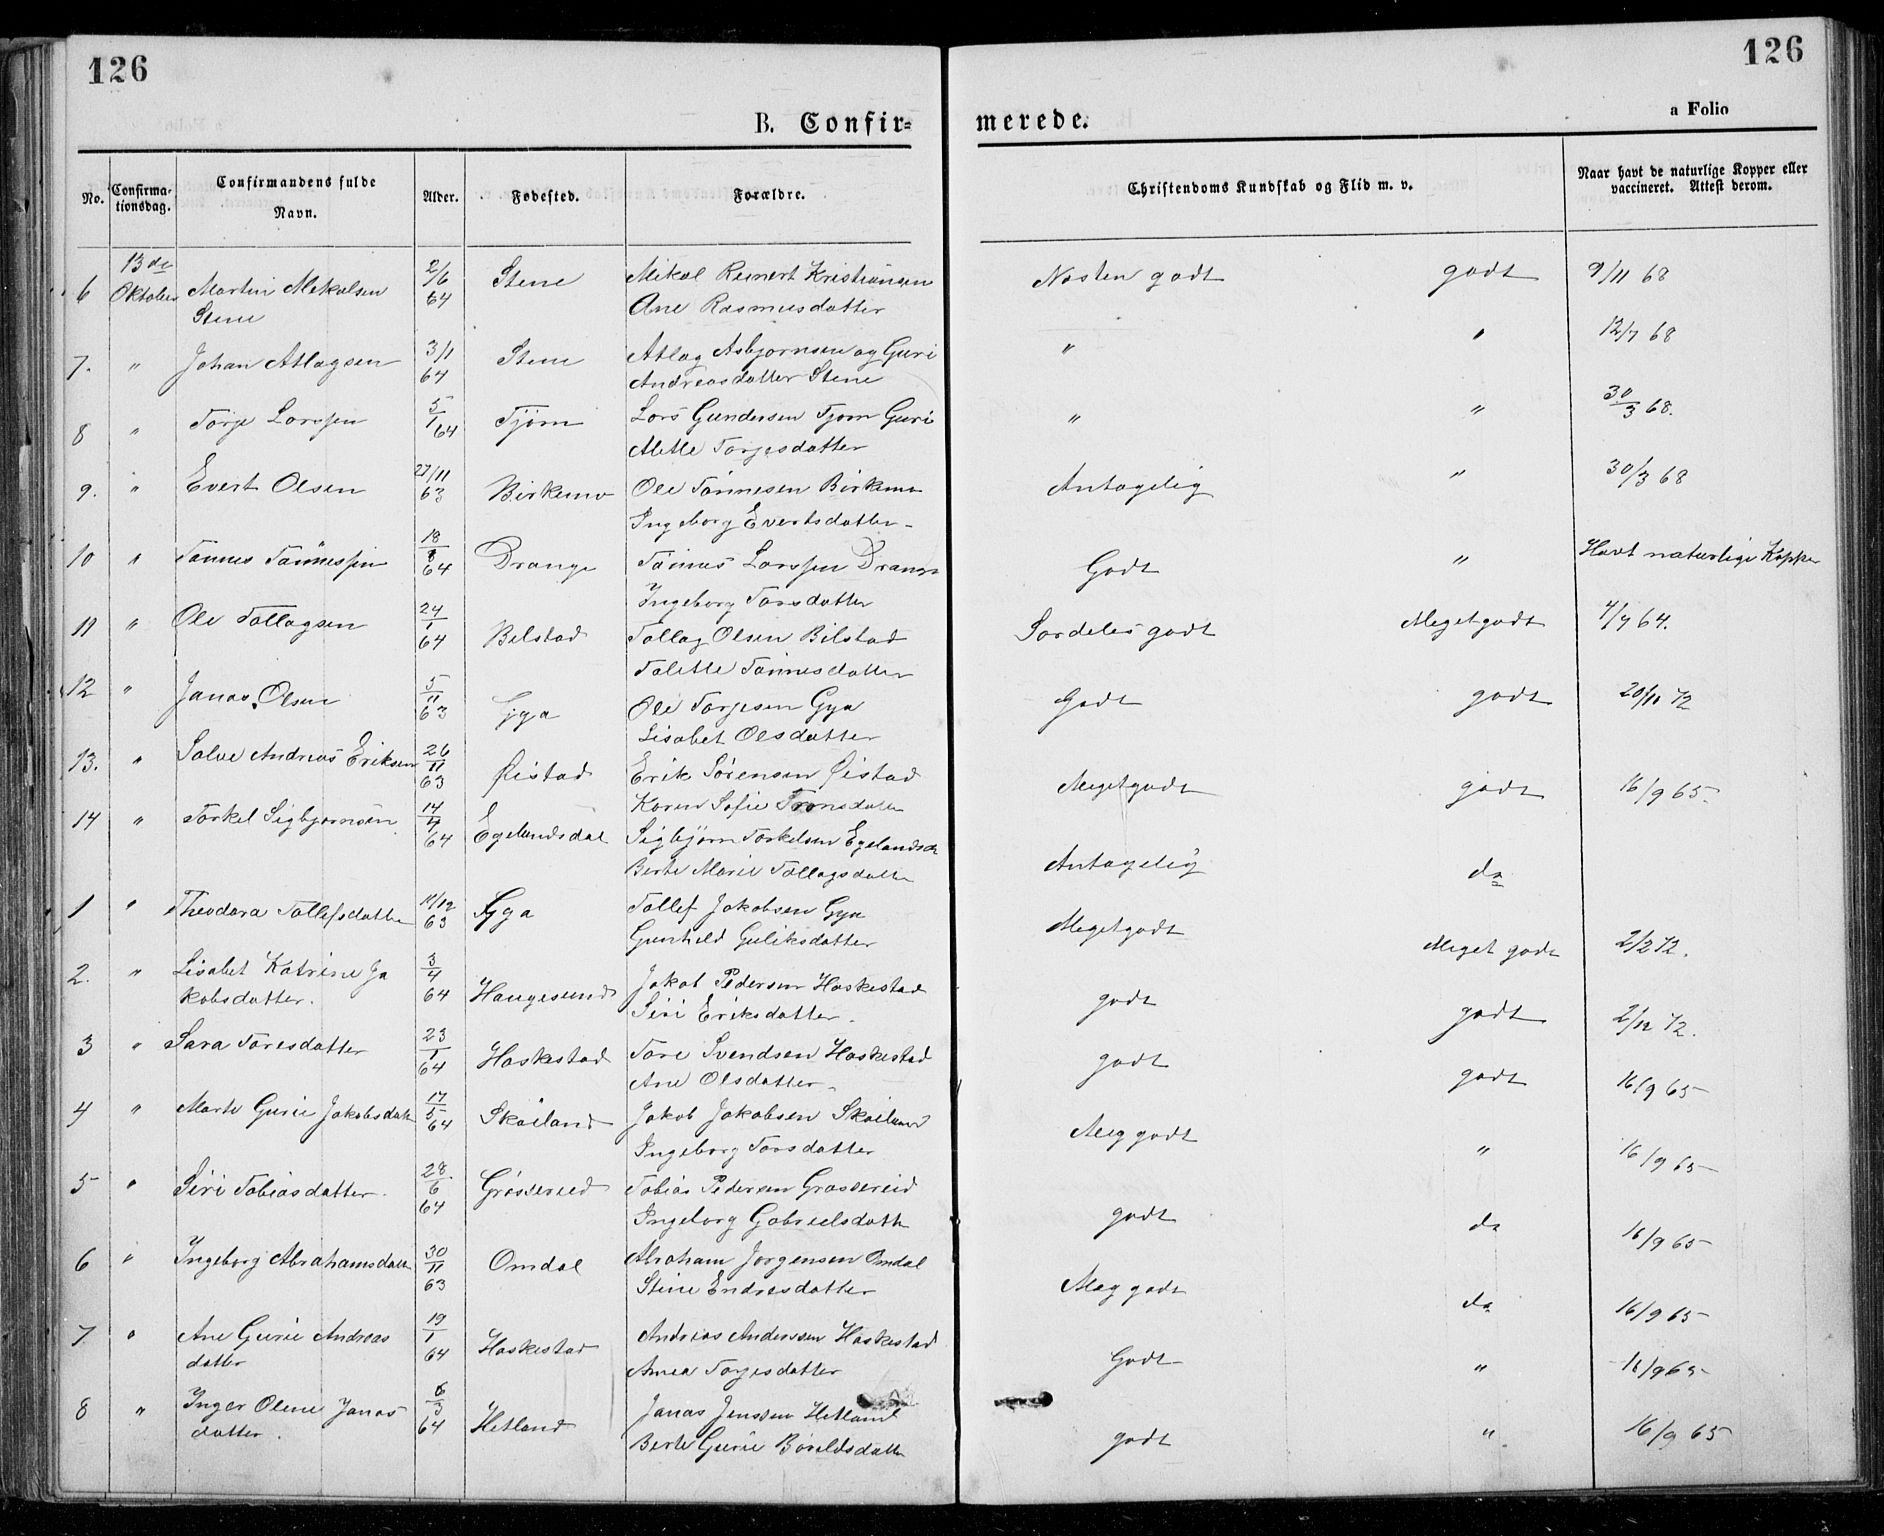 126
126
B. Confir-
merede.
a Folio
No.
Confirma-
tionsdag.
Confirmandens fulde
Navn.
Alder.
Fødested.
Forældre.
Christendoms Kundskab og Flid m. v.
Naar havt de naturlige Kopper eller
vaccineret. Attest derom.
6 13de Oktober Martin Mekalsen 2/6 64 Stene Mikal Reinert Kristiansen Nesten godt godt 9/11 68
Stene Ane Rasmusdatter
7. " Johan Atlagsen 3/1 64 Stene Atlag Asbjornsen og Guri " " 12/7 68
Andreasdatter Stene
8 " Torje Larssen 5/1 64 Tjørn Lars Gundersen Tjorn Guri " " 30/3 68.
Mette Torjesdatter
9. " Evert Olsen 27/11 63 Birkemo Ole Tønnesen Birkemo Antagelig " 30/3 68
Ingeborg Evertsdatter
10 " Tønnes Tønnessen 18/8 64 Drange Tønnes Larssen Drange Godt " Havt naturlige Kopper
Ingeborg Torsdatter
11 " Ole Tollagsen 24/1 64 Bilstad Tollag Olsen Bilstad Sardeles godt Meget godt 4/7 64.
Talette Tønnesdatter
12 " Jonas Olsen 5/11 63 Gya Ole Torjesen Gya Godt godt 20/11 72
Lisabet Olsdatter
13. " Salve Andreas Eriksen 26/11 63 Øistad Erik Sørensen Øistad Meget godt godt 16/9 65.
Karen Sofie Tronsdatter
14 " Torkel Sigbjørnsen 14/4 64 Egelandsdal Sigbjørn Torkelsen Egelandsd Antagelig do
Berte Marie Tollagsdatter
1 " Theodora Tollefsdatter 11/12 63 Gya Tollef Jakobsen Gya Meget godt Meget godt 2/2 72.
Gunhild Guliksdatter
2. " Lisabet Katrine Ja 3/4 64 Haugesund Jakob Pedersen Haskestad godt godt 2/12 72.
kobsdatter. Siri Eriksdatter.
3 " Sara Toresdatter 23/1 64 Haskestad Tore Svendsen Haskestad godt godt 16/9 65
Ane Olsdatter
4 " Marte Gurie Jakobsdatt 17/5 64 Skøiland Jakob Jakobsen Skøiland Meg godt " 16/9 65
Ingeborg Torsdatter
5 " Siri Tobiasdatter 28/6 64 Grøsereid Tobias Pedersen Grøsereid godt do 16/9 65
Ingeborg Gabrielsdatt
6 " Ingeborg Abrahamsdatt 30/11 63 Omdal Abraham Jørgensen Omdal Meg godt do 16/9 65
Stine Endresdatter
7 " Ane Gurie Andreas 19/1 64 Haskestad Andreas Anderssen Haskestad Godt " 16/9 65
datter Anna Torjesdatter
8 " Inger Oline Jonas 6/3 64 Hetland Jonas Jenssen Hetland godt " 16/9 65
datter. Berte Gurie Børildsdatt